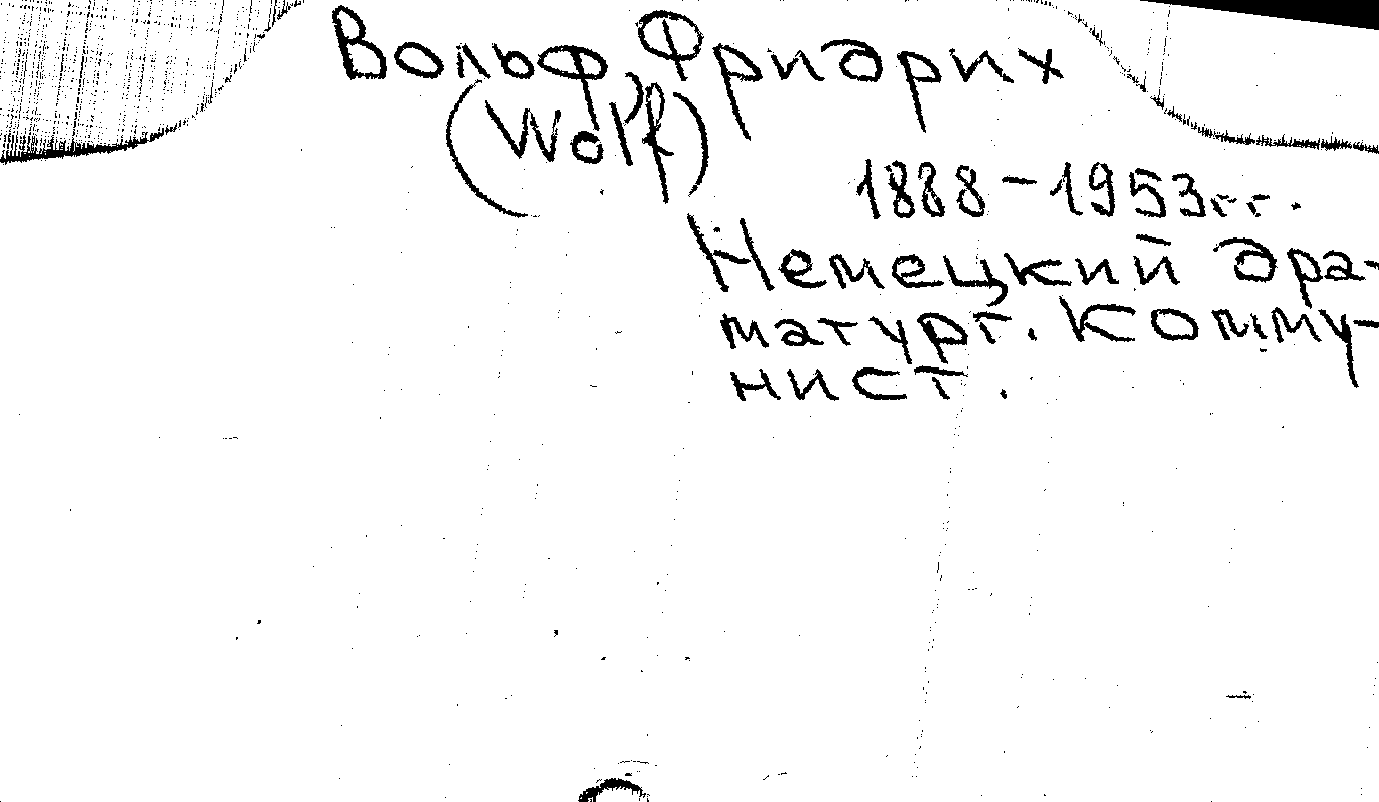 Вольф, Фридрих
(Wolf)
1888-1953гг.
Немецкий дра-
матург. Комму-
нист.